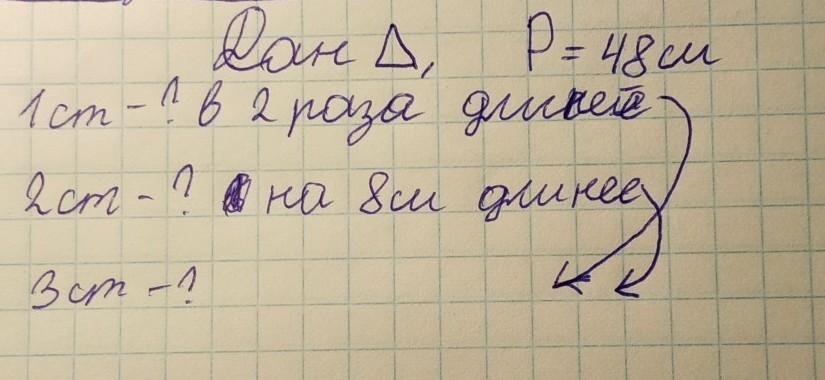 Дан Δ, P = 48см
1ст - ? в 2 раза длинее
2ст - ? на 8см длинее
3ст - ?